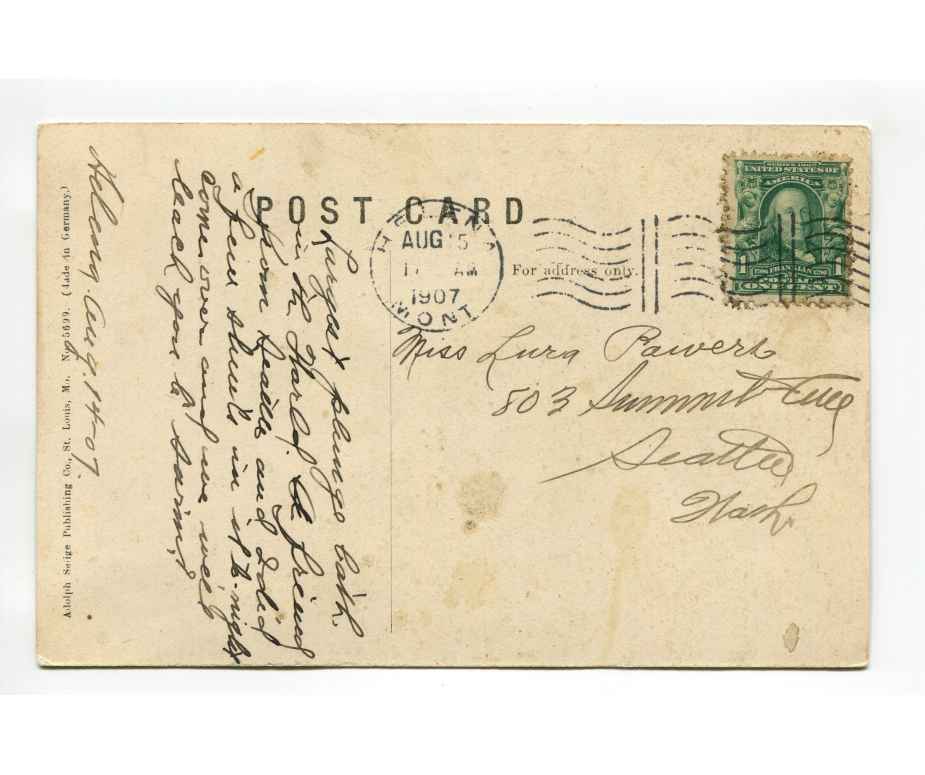 POST CARD
For address only.
HELENA
AUG 15
AM
1907
MONT
SERIES 1902
UNITED STATES OF
AMERICA
1706 FRANKLIN 1790
ONE CENT
Largest plunge bath
in the World. A friend
from Seattle and I did
a few stunts in it to-night
come over and we will
teach you to swim.
Helena Aug. 14-07.
Miss Lura Powers
803 Summit Ave
Seattle
Wash.
Adolph Selige Publishing Co., St. Louis, Mo. No. 5699. (Made in Germany.)